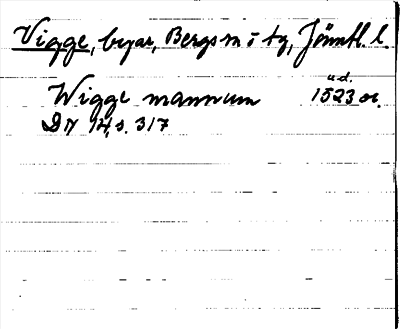 Vigge, byar, Bergs sn o tg, Jämtl. l.
u.d.
Wigge mannum 1523 or.
DN 14, s. 317